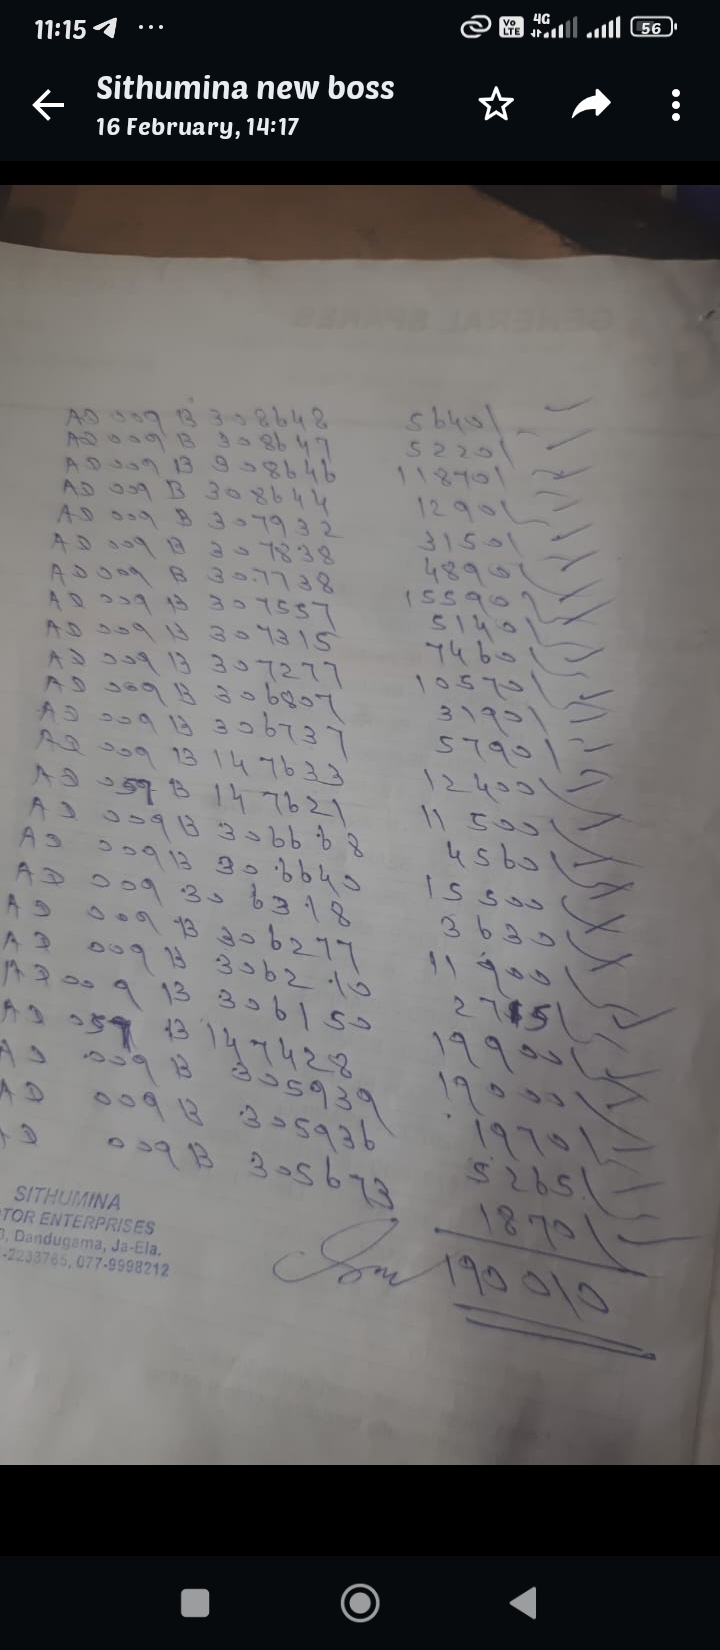 11:15
Vo LTE
4G
56
Sithumina new boss
16 February, 14:17
GENERAL SPARES
AD 009 B 308648 5640/
AD 009 B 308647 5220/
AD 009 B 308646 11870/
AD 009 B 308644 1290/
AD 009 B 307932 3150/
AD 009 B 307838 4890/
AD 009 B 307738 15590/
AD 009 B 307557 5140/
AD 009 B 307315 7460/
AD 009 B 307277 10570/
AD 009 B 306807 3190/
AD 009 B 306737 5790/
AD 009 B 147633 12400/
AD 059 B 147621 11500/
AD 009 B 306668 4560/
AD 009 B 306640 15500/
AD 009 306318 3630/
AD 009 B 306277 11900/
AD 009 B 306210 2715/
AD 009 B 306150 19900/
AD 059 B 147428 19000/
AD 009 B 305939 1970/
AD 009 B 305936 5265/
AD 009 B 305673 1870/
190010
SITHUMINA
TOR ENTERPRISES
, Dandugama, Ja-Ela.
-2233765, 077-9998212